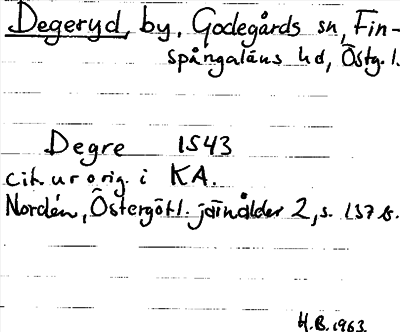 Degeryd, by, Godegårds sn, Fin-
spångaläns hd, Östg. l.
Degre 1543
cit. ur orig. i KA.
Nordén, Östergötl. järnålder 2, s. 137 b.
H.B. 1963